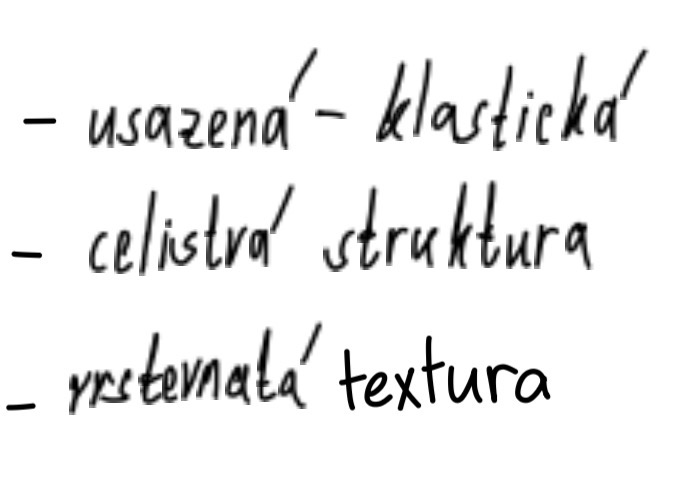 - usazená - klastická
- celistvá struktura
- vrstevnatá textura